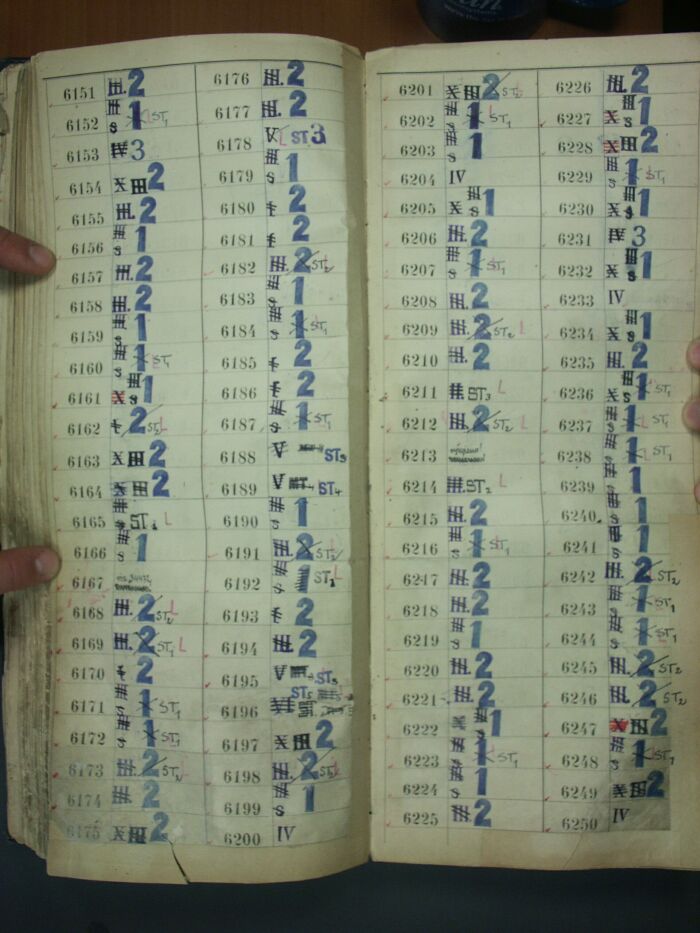 6151 III. 2
6152 III s 1 ST1
6153 IV 3
6154 X III 2
6155 III. 2
6156 III s 1
6157 III. 2
6158 III. 2
6159 III s 1
6160 III s 1 ST1
6161 X III s 1
6162 2 ST2 L
6163 X III 2
6164 X III 2
6165 s ST L
6166 III s 1
6167
6168 III. 2 ST2 L
6169 III. 2 ST1 L
6170 2
6171 III s 1 ST1
6172 III s 1 ST1
6173 III. 2 ST2 L
6174 III. 2
6175 X III 2
6176 III. 2
6177 III. 2
6178 V L ST 3
6179 III s 1
6180 2
6181 2
6182 III. 2 ST2
6183 III s 1
6184 III s 1 ST1
6185 2
6186 2
6187 III s 1 ST1
6188 V ST3
6189 V ST4
6190 III s 1
6191 III. 2 ST2
6192 III s 1 ST1 L
6193 2
6194 III. 2
6195 V ST3
6196 ST5
6197 X III 2
6198 III. 2 ST2
6199 III s 1
6200 IV
6201 X III 2 ST2
6202 III s 1 L ST1
6203 III s 1
6204 IV
6205 X III s 1
6206 III. 2
6207 III s 1 ST1
6208 III. 2
6209 III. 2 ST2 L
6210 III. 2
6211 ST3 L
6212 III. 2 ST2 L
6213
6214 III. ST2 L
6215 III. 2
6216 III s 1 ST1
6217 III. 2
6218 III. 2
6219 III s 1
6220 III. 2
6221 III. 2
6222 III s 1
6223 III s 1 ST1
6224 III s 1
6225 III 2
6226 III. 2
6227 X III s 1
6228 X III 2
6229 III s 1 ST1
6230 X III s 1
6231 IV 3
6232 X III s 1
6233 IV
6234 X III s 1
6235 III. 2
6236 X III s 1 ST1
6237 III s 1 L ST1
6238 III s 1 L ST1
6239 III s 1
6240 III s 1
6241 III s 1
6242 III. 2 ST2
6243 III s 1 ST1
6244 III s 1 ST1
6245 III. 2 ST2
6246 III. 2 ST2
6247 X III 2
6248 III s 1 ST1
6249 X III 2
6250 IV